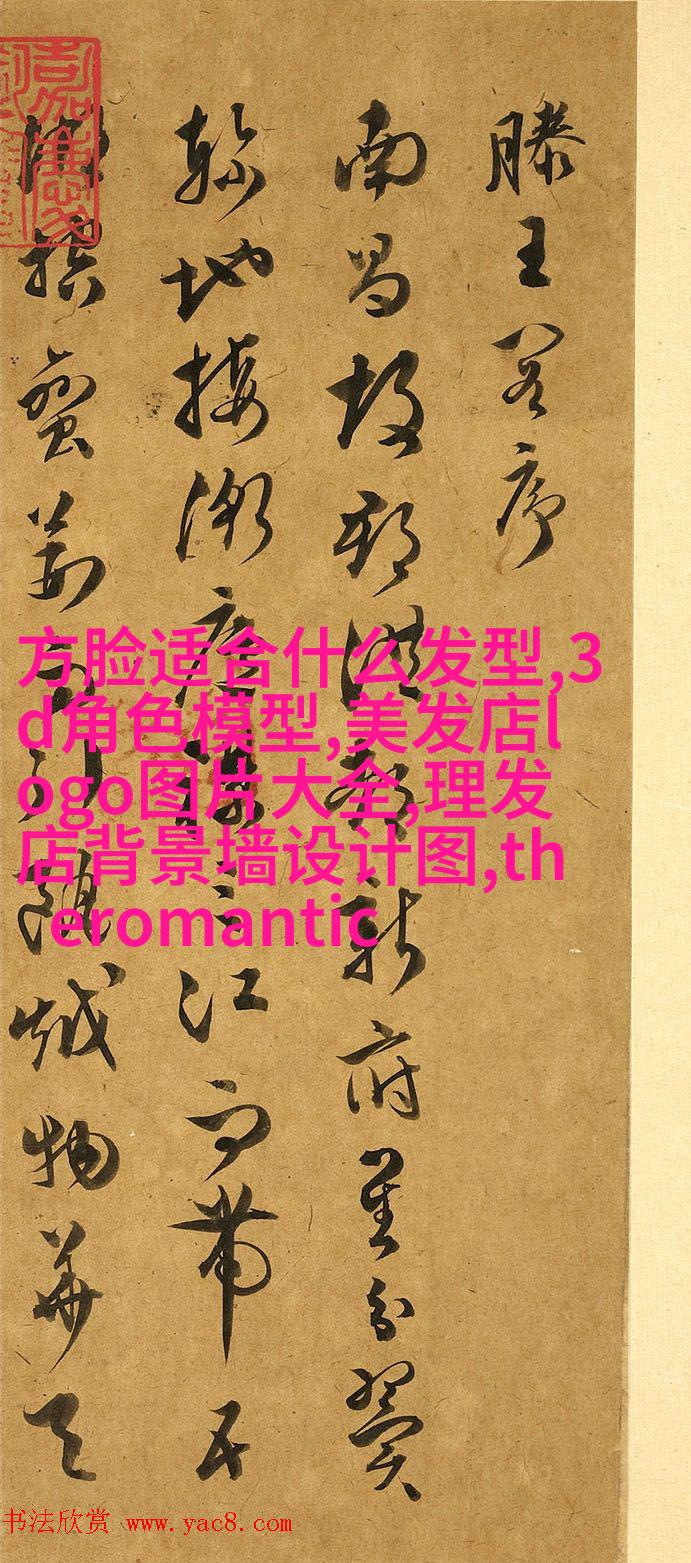 滕王閣序
南昌故郡洪都新府星分翼
軫地接衡廬襟三江而帶五
湖控蠻荊而引甌越物華天
方脸适合什么发型,3
d角色模型,美发店l
ogo图片大全,理发
店背景墙设计图,th
eromantic
书法欣赏 www.yac8.com